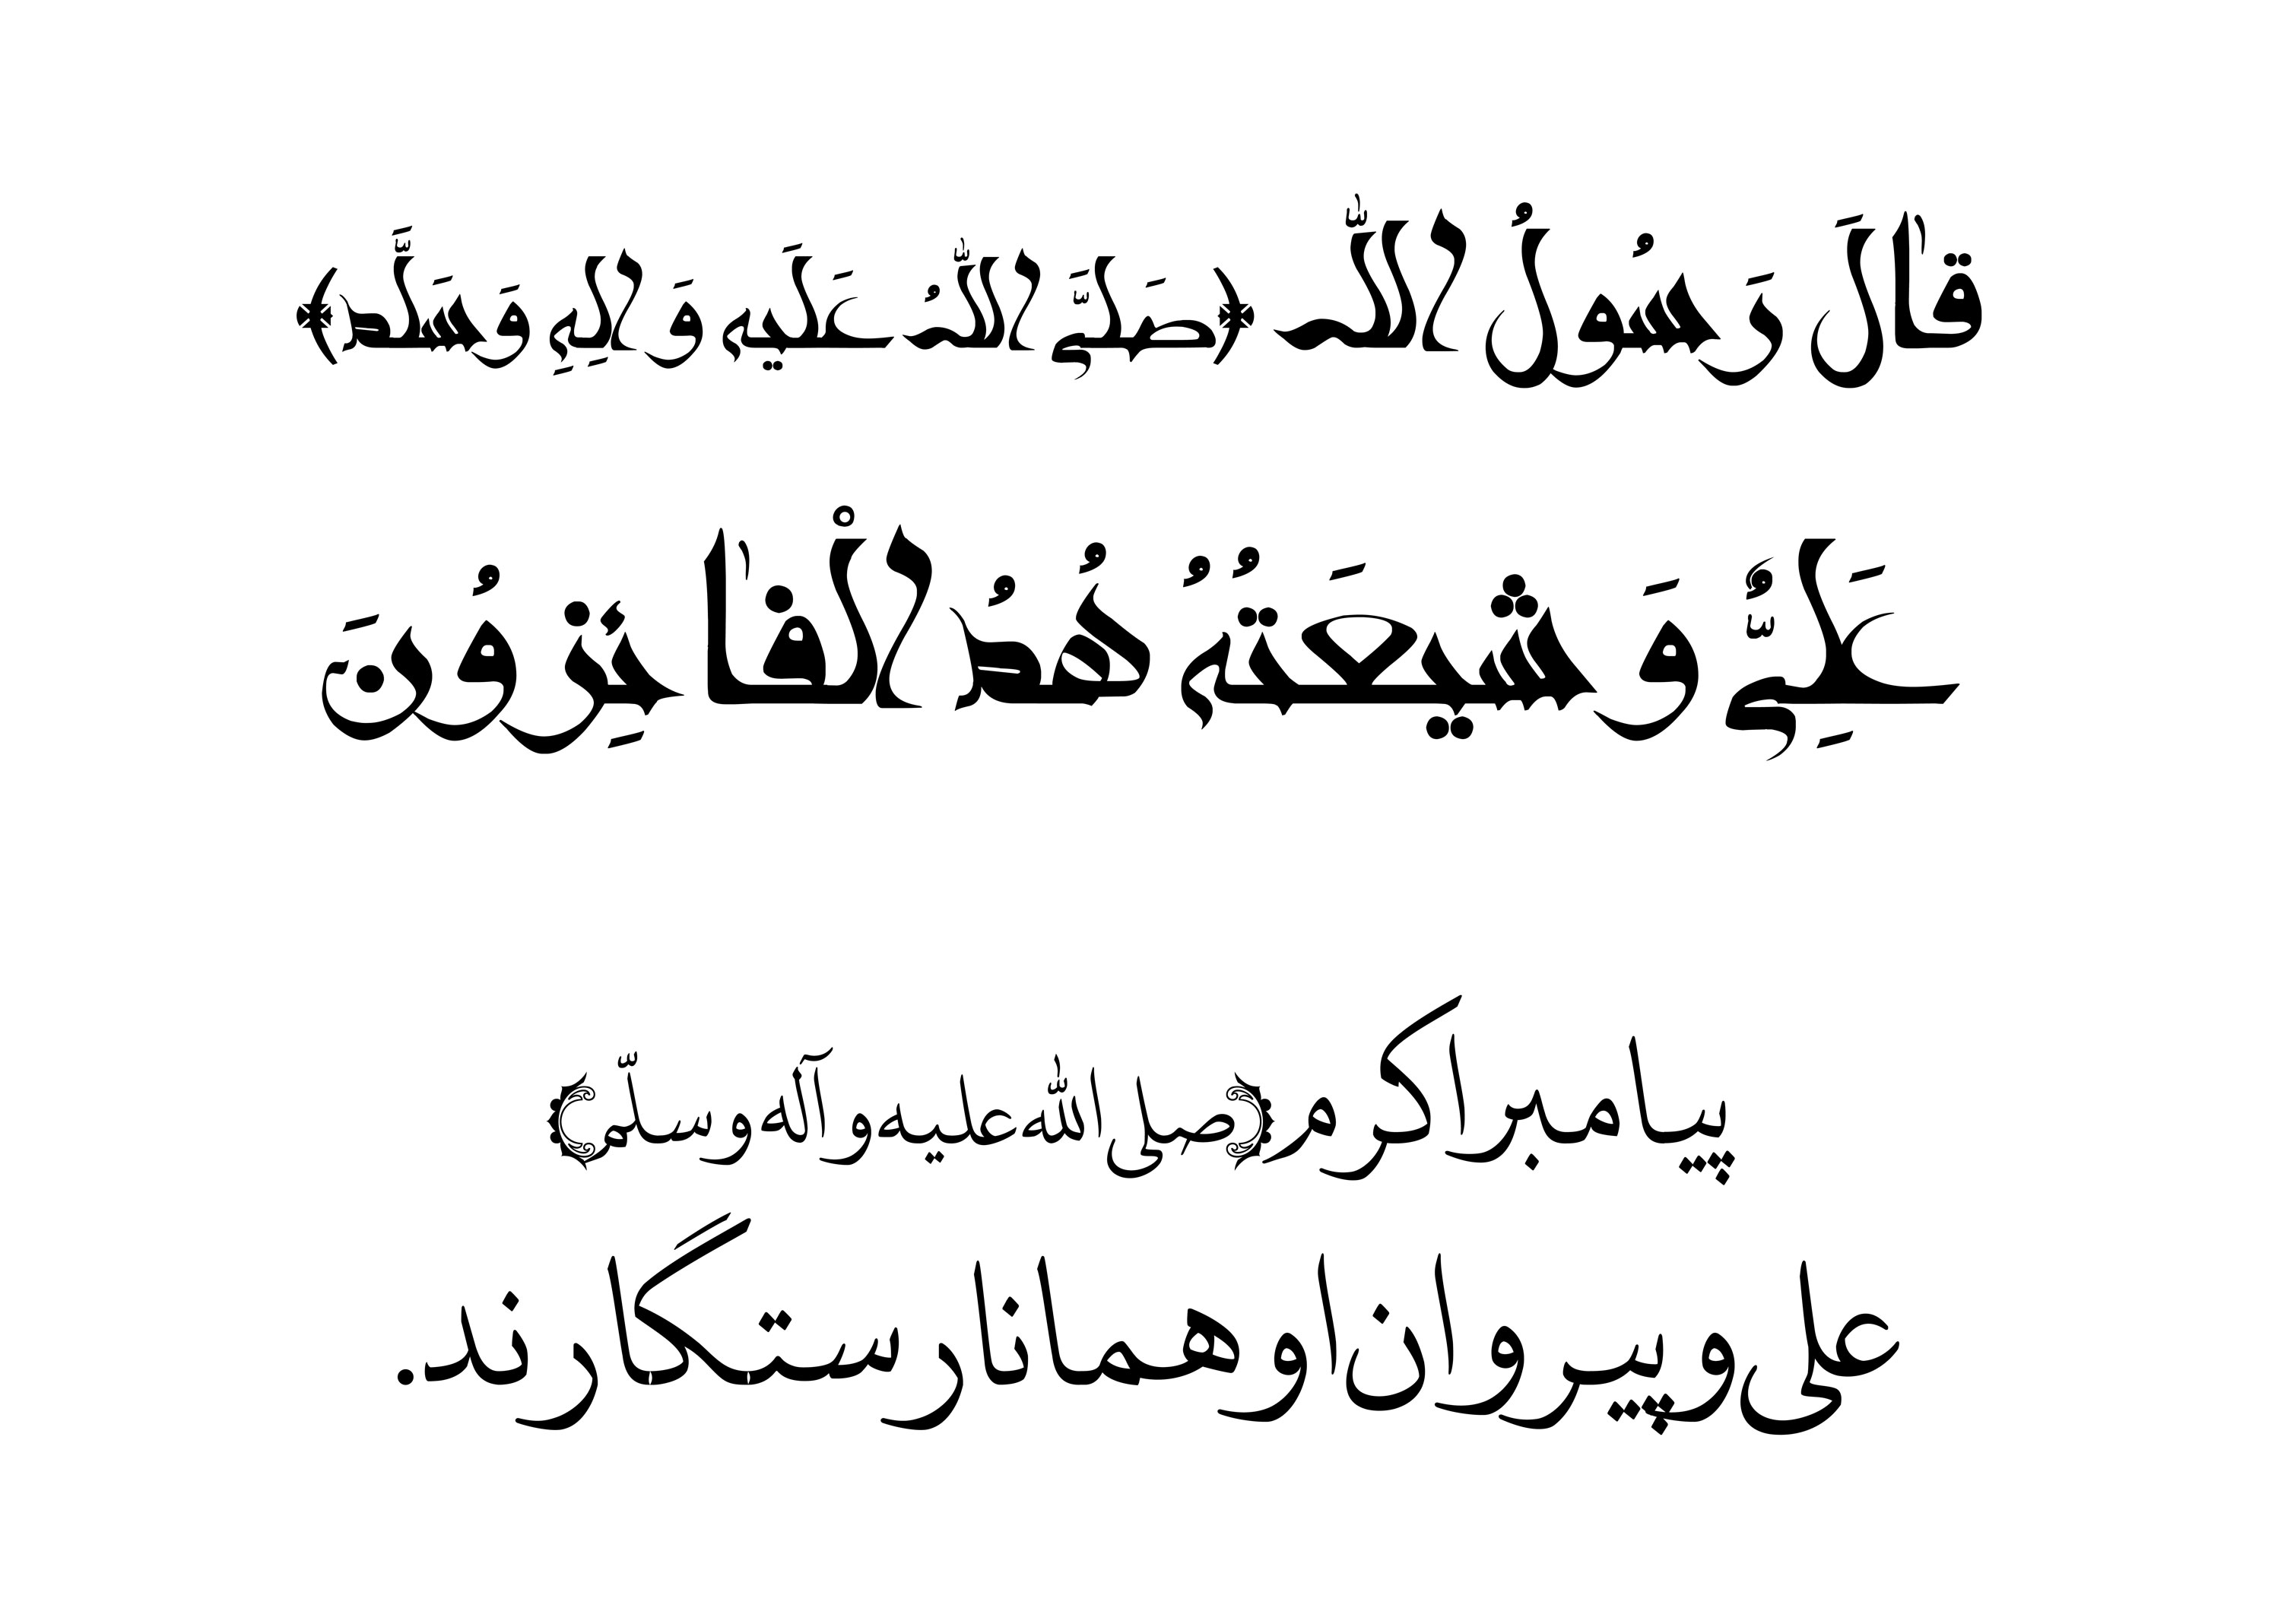 قٰالَ رَسُولُ اللّٰه (صَلَّی اللّٰهُ عَلَیهِ وَ اٰلِهِ وَ سَلَّم)
عَلِیٌّ وَ شیعَتُهُ هُمُ الْفٰائِزُونَ
پیامبر اکرم (صلی اللّٰه علیه و آله و سلّم)
علی و پیروان او همانا رستگارند.